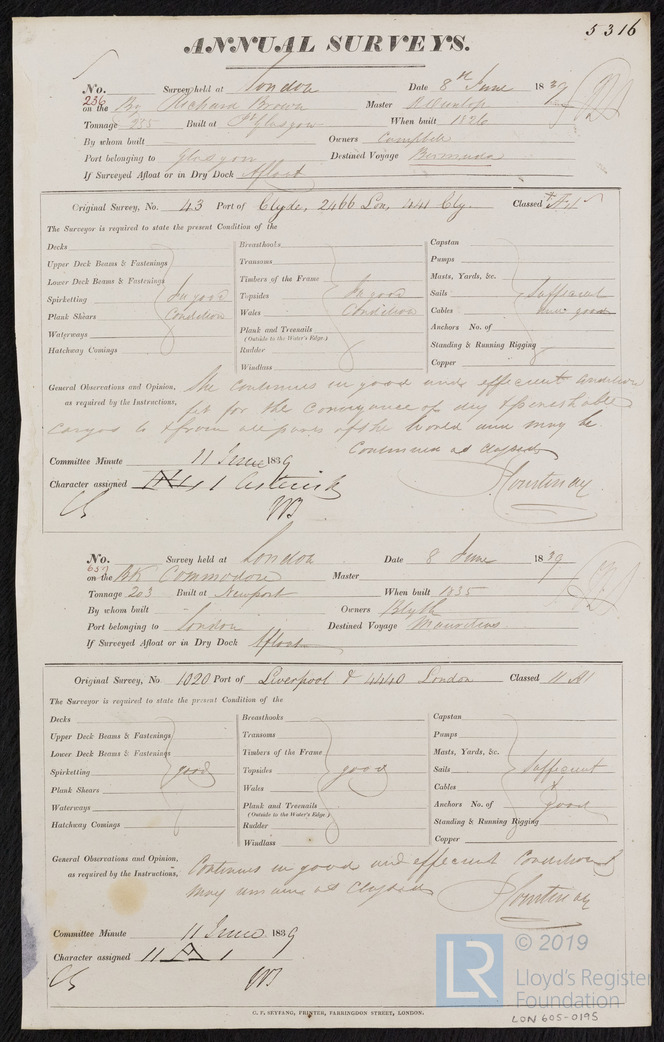 5316
ANNUAL SURVEYS.
No. 236 Survey held at London Date 8th June 1839
on the Bg Richard Brown Master Dunlop
Tonnage 255 Built at Pt Glasgow When built 1826
By whom built Owners Campbell
Port belonging to Glasgow Destined Voyage Bermuda
If Surveyed Afloat or in Dry Dock Afloat
Original Survey, No. 43 Port of Clyde, 2466 Lon, 441 Cly. Classed *A1
The Surveyor is required to state the present Condition of the
Decks Breasthooks Capstan
Upper Deck Beams & Fastenings Transoms Pumps
Lower Deck Beams & Fastenings Timbers of the Frame Masts, Yards, &c.
Spirketting In good Topsides In good Sails Sufficient
Plank Shears Condition Wales Condition Cables and good
Waterways Plank and Treenails Anchors No. of
(Outside to the Water's Edge.)
Hatchway Comings Rudder Standing & Running Rigging
Windlass Copper
General Observations and Opinion, She continues in good and efficient condition
as required by the Instructions, fit for the Conveyance of dry & perishable
cargoes to & from all parts of the World and may be
Continued as classed
Committee Minute 11 June 1839
Character assigned A 1 Asterisk
P Courtenay
No. 657 Survey held at London Date 8 June 1839
on the Bk Commodore Master
Tonnage 203 Built at Newport When built 1835
By whom built Owners Blyth
Port belonging to London Destined Voyage Mauritius
If Surveyed Afloat or in Dry Dock Afloat
Original Survey, No 1020 Port of Liverpool & 4440 London Classed 11 A1
The Surveyor is required to state the present Condition of the
Decks Breasthooks Capstan
Upper Deck Beams & Fastenings Transoms Pumps
Lower Deck Beams & Fastenings Timbers of the Frame Masts, Yards, &c.
Spirketting good Topsides good Sails Sufficient
Plank Shears Wales Cables &
Waterways Plank and Treenails Anchors No. of good
(Outside to the Water's Edge.)
Hatchway Comings Rudder Standing & Running Rigging
Windlass Copper
General Observations and Opinion, Continues in good and efficient Condition &
as required by the Instructions, may remain as Classed
Courtenay
Committee Minute 11 June 1839
Character assigned 11 A 1
C. F. SEYFANG, PRINTER, FARRINGDON STREET, LONDON.
LR © 2019
Lloyd's Register
Foundation
LON 605-0195